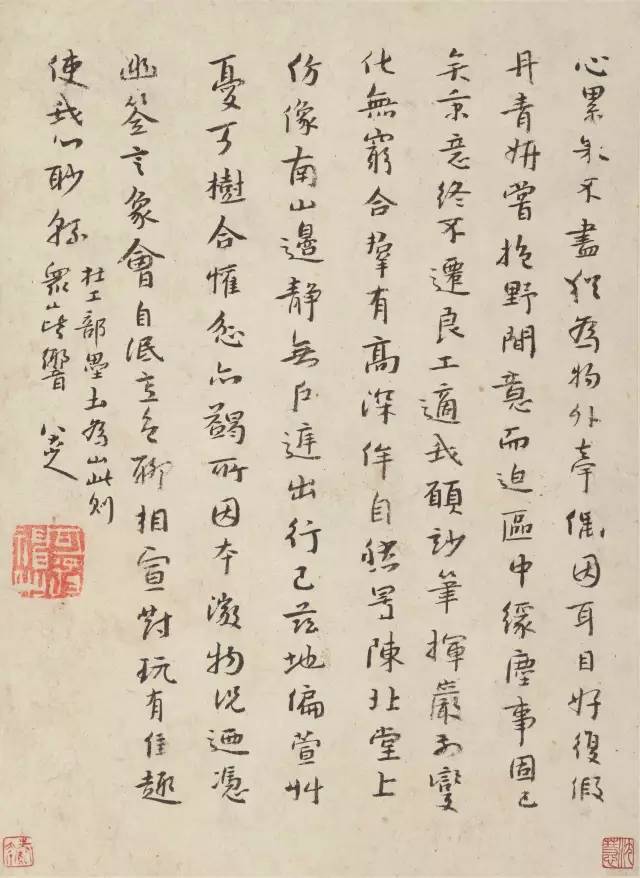 心累矣不盡猶為物外牽偶因耳目好復假
丹青妍嘗抱野間意而迫區中緣塵事固已
矣秉意終不遷良工適我願訬筆揮嚴變
化無窮合羣有高深侔自然陳北堂上
仿像南山邊靜無戶庭出行已茲地偏萱艸
憂可樹合懽忿亦蠲所因本微物況迺憑
幽筌言象會自泯意色聊相宣對玩有佳趣
使我心眇緜
杜工部壘土為山此則
眾山皆響 八大山人